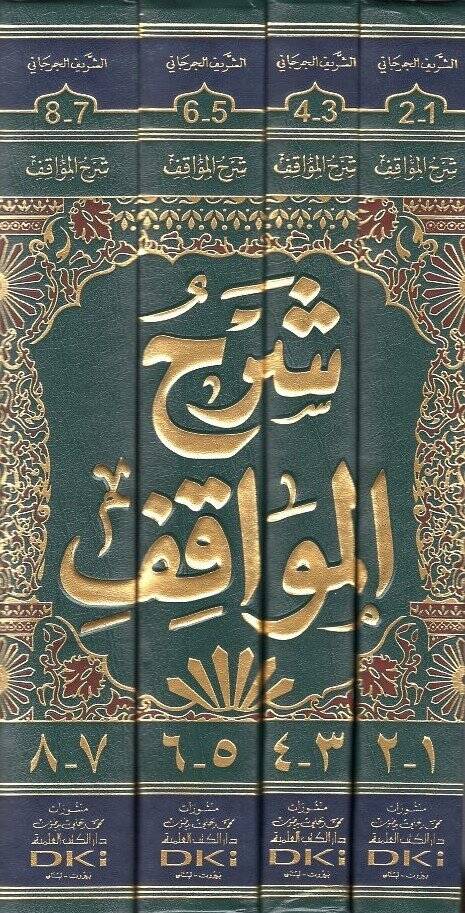 الشريف الجرجاني
2-1
شرح المواقف
الشريف الجرجاني
4-3
شرح المواقف
الشريف الجرجاني
6-5
شرح المواقف
الشريف الجرجاني
8-7
شرح المواقف
شَرْحُ
المَوَاقِفِ
١-٢
٣-٤
٥-٦
٧-٨
منشورات
محمد علي بيضون
دار الكتب العلمية
DKi
بيروت - لبنان
منشورات
محمد علي بيضون
دار الكتب العلمية
DKi
بيروت - لبنان
منشورات
محمد علي بيضون
دار الكتب العلمية
DKi
بيروت - لبنان
منشورات
محمد علي بيضون
دار الكتب العلمية
DKi
بيروت - لبنان